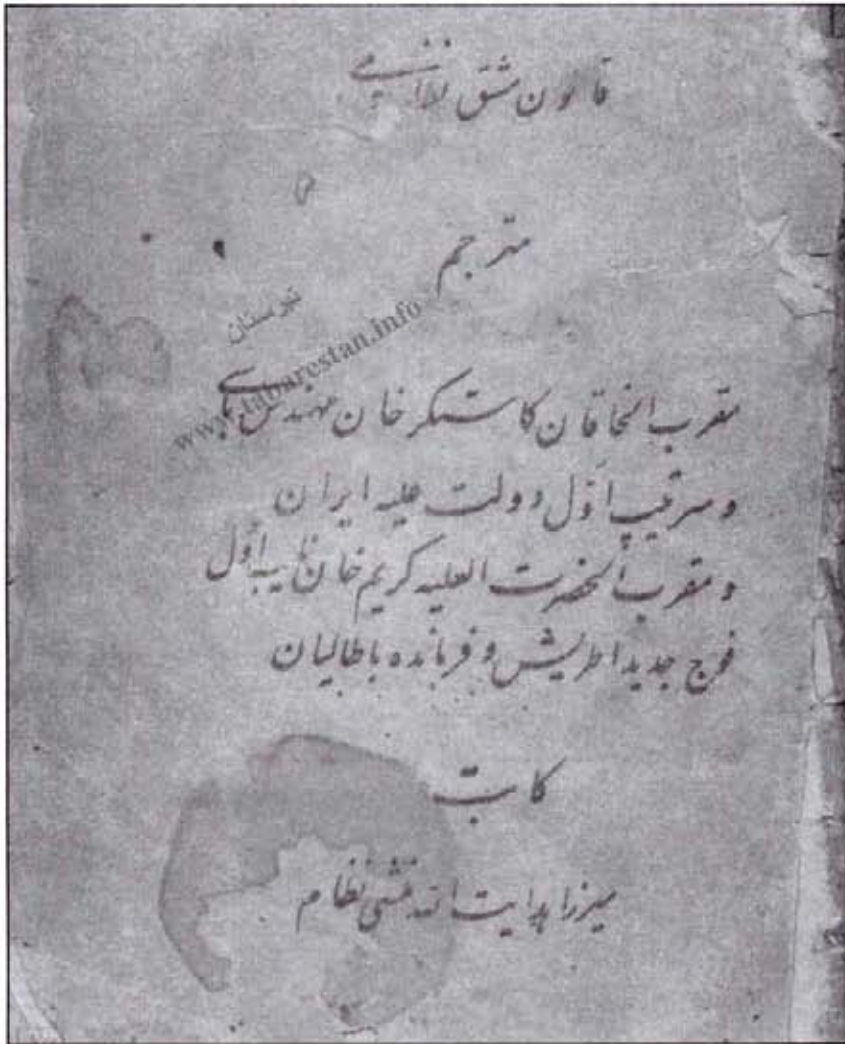 قانون مشق نظامی
مترجم
تبرستان
www.tabarestan.info
مقرب الخاقان کاستکر خان مهندس باشی
و سرتیپ اول دولت علیه ایران
و مقرب الحضرت العلیه کریم خان نایب اول
فوج جدید اطریش و فرمانده باطالیان
کاتب
میرزا هدایت الله منشی نظام